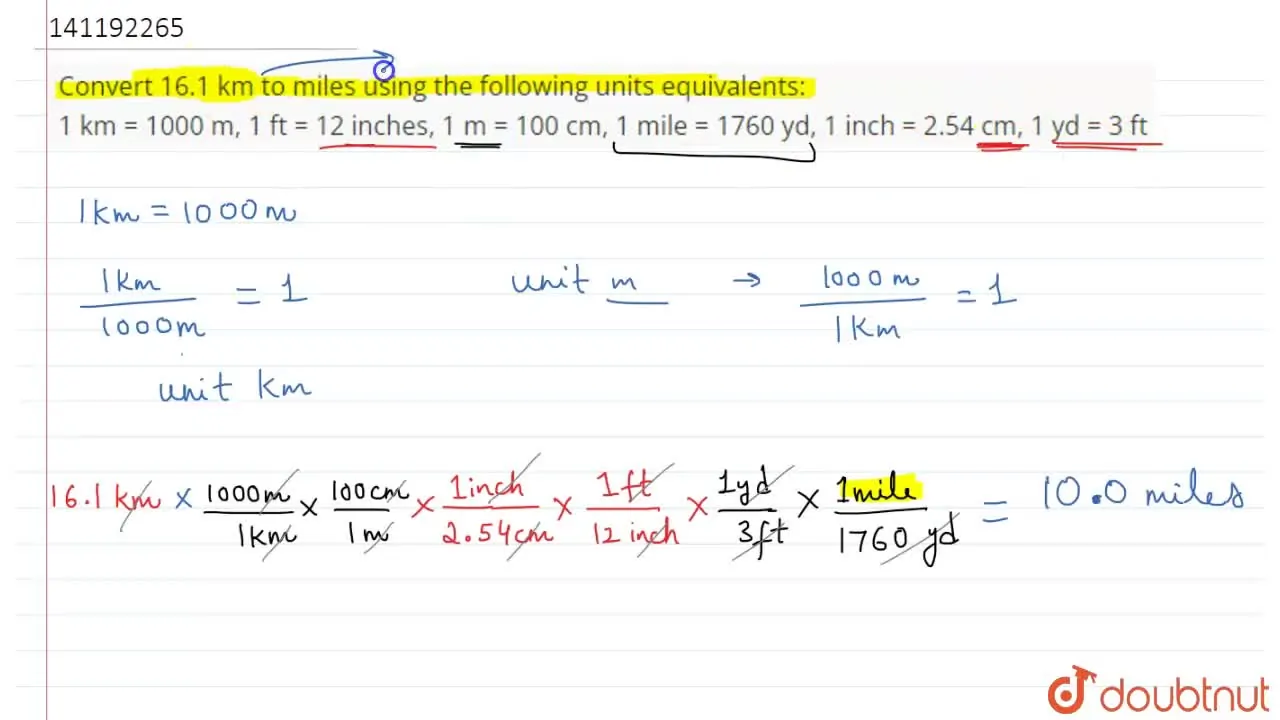 141192265
Convert 16.1 km to miles using the following units equivalents:
1 km = 1000 m, 1 ft = 12 inches, 1 m = 100 cm, 1 mile = 1760 yd, 1 inch = 2.54 cm, 1 yd = 3 ft
1km = 1000m
1km/1000m = 1 unit m → 1000m/1Km = 1
unit km
16.1 km × 1000m/1km × 100cm/1m × 1inch/2.54cm × 1ft/12 inch × 1yd/3ft × 1mile/1760 yd = 10.0 miles
doubtnut